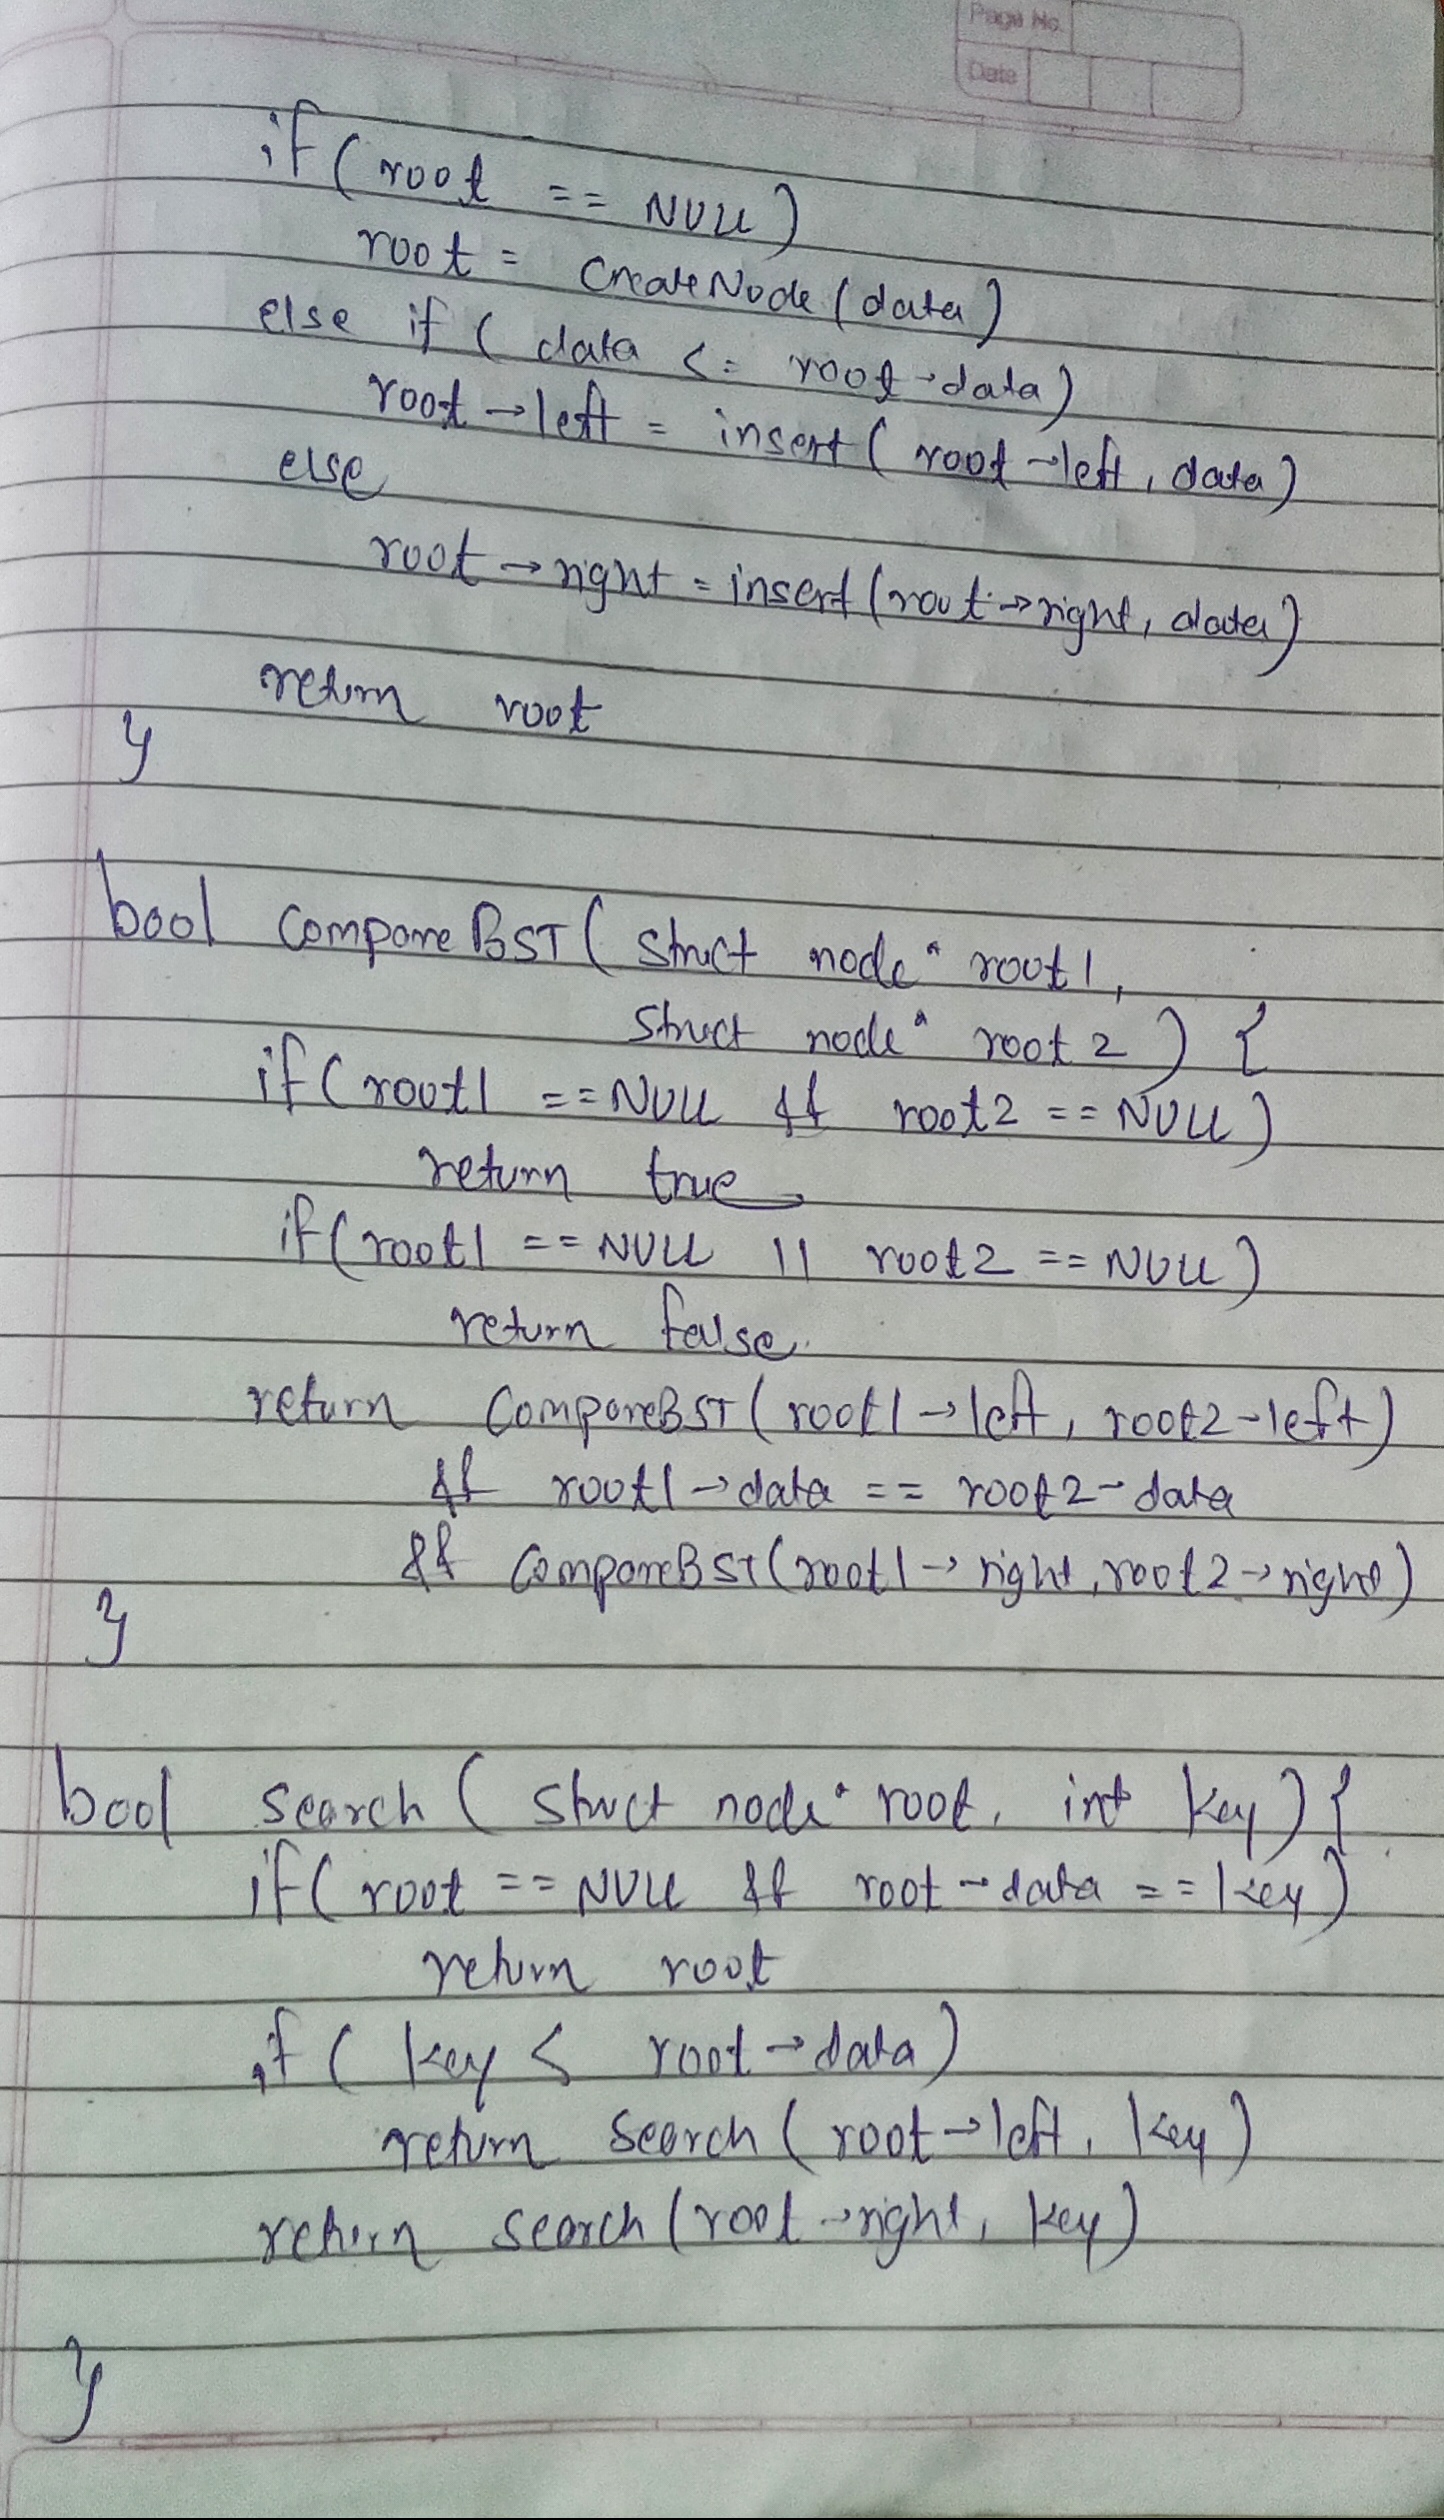 Page No.
Date
if ( root == NULL )
root = CreateNode ( data )
else if ( data <= root → data )
root → left = insert ( root → left , data )
else
root → right = insert ( root → right , data )
return root
}
bool CompareBST ( struct node * root1 ,
struct node * root2 ) {
if ( root1 == NULL && root2 == NULL )
return true
if ( root1 == NULL || root2 == NULL )
return false
return CompareBST ( root1 → left , root2 → left )
&& root1 → data == root2 → data
&& CompareBST ( root1 → right , root2 → right )
}
bool search ( struct node * root , int key ) {
if ( root == NULL && root → data == key )
return root
if ( key < root → data )
return search ( root → left , key )
return search ( root → right , key )
}